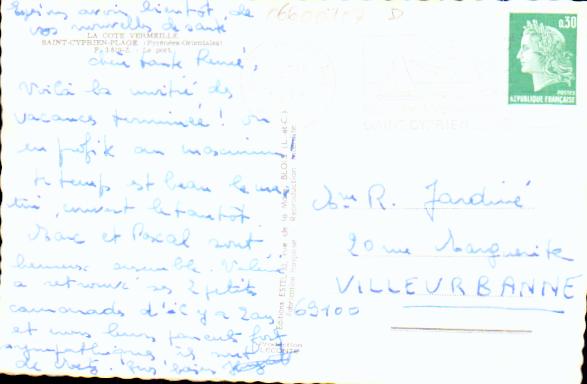 Espère avoir bientôt de
vos nouvelles de santé
LA COTE VERMEILLE
SAINT-CYPRIEN-PLAGE (Pyrénées-Orientales)
Le port
chère tante Renée,
Voilà la moitié des
vacances terminée! on
en profite au maximum
le temps est beau le
, couvert le tantôt
Marc et Pascal sont
heureux ensemble.
a retrouvé ses 2 petits
camarades d'il y a 2 ans
et nous leurs parents fort
sympathiques ils sont
de Metz.
Editions rue de la BLOIS (L.-et-C.)
Fabrication française Reproduction
0,30
POSTES
REPUBLIQUE FRANÇAISE
SAINT-CYPRIEN
Mme R. Jardiné
20 rue Marguerite
VILLEURBANNE
69100